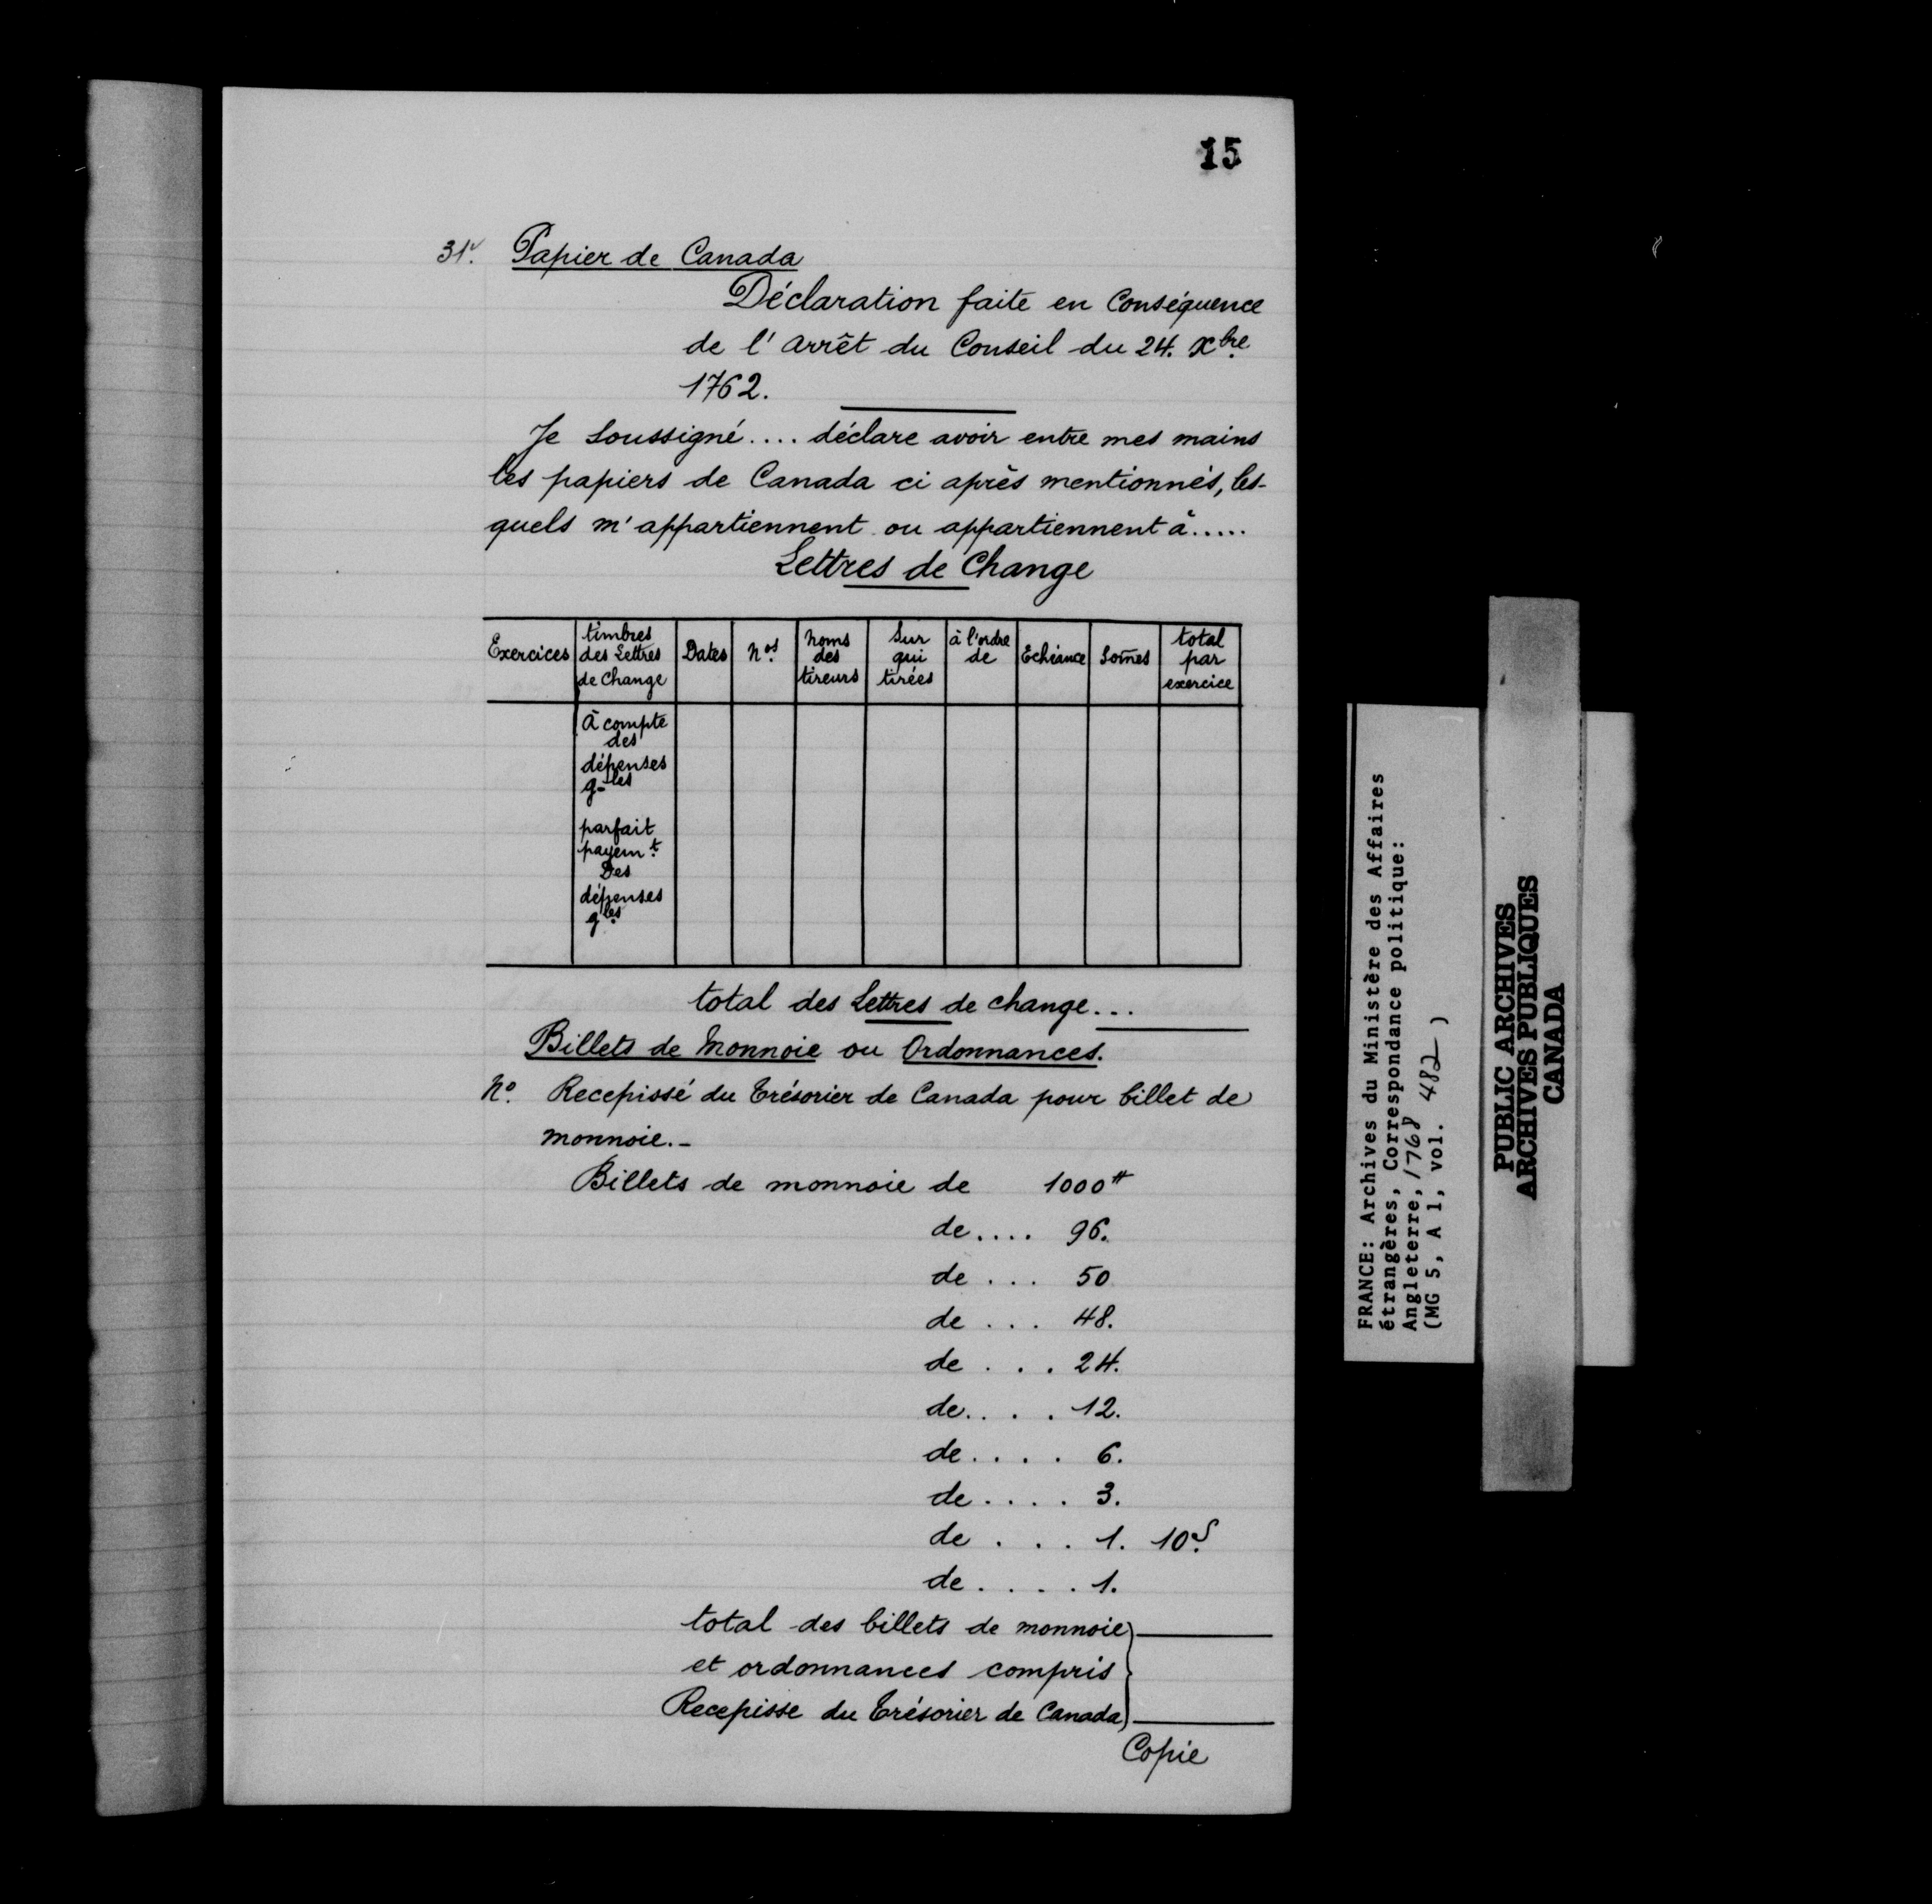 15
31v. Papier de Canada
Déclaration faite en Conséquence
de l'Arrêt du Conseil du 24. Xbre
1762.
Je Soussigné.... déclare avoir entre mes mains
les papiers de Canada ci après mentionnés, les-
quels m'appartiennent ou appartiennent à.....
Lettres de Change
Exercices | timbres des Lettres de Change | Dates | Nos. | Noms des tireurs | Sur qui tirées | à l'ordre de | Echéance | Som̃es | total par exercice
À compte
des
dépenses
g-les
parfait
payem.t
Des
dépenses
g.les
total des Lettres de change...
Billets de Monnoie ou Ordonnances.
No. Recepissé du Trésorier de Canada pour billet de
monnoie.-
Billets de monnoie de 1000tt
de.... 96.
de ... 50
de ... 48.
de . . . 24.
de.. . . 12.
de. . . . 6.
de. . . . 3.
de . . . 1. 10s.
de. . . . 1.
total des billets de monnoie
et ordonnances compris
Recepisse du Trésorier de Canada
Copie
FRANCE: Archives du Ministère des Affaires
étrangères, Correspondance politique:
Angleterre, 1768
(MG 5, A 1, vol. 482 )
PUBLIC ARCHIVES
ARCHIVES PUBLIQUES
CANADA